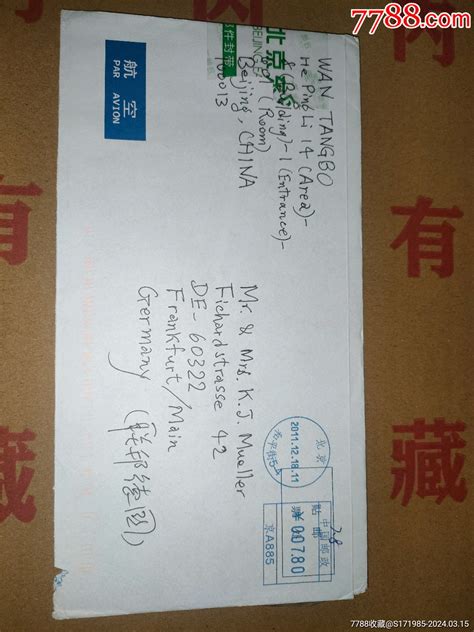 7788.com
航空
PAR AVION
北京
BEIJING
件封带
WAN TANGBO
He Ping Li 14 (Area)-
(Building)-1 (Entrance)-
(Room)
Beijing, CHINA
100013
Mr. & Mrs. K.J. Mueller
Fichardstrasse 42
DE-60322
Frankfurt/Main
Germany (联邦德国)
北京
2011.12.18.11
中国邮政
贴邮票
00780
京A885
有
藏
有
7788收藏@S171985-2024.03.15